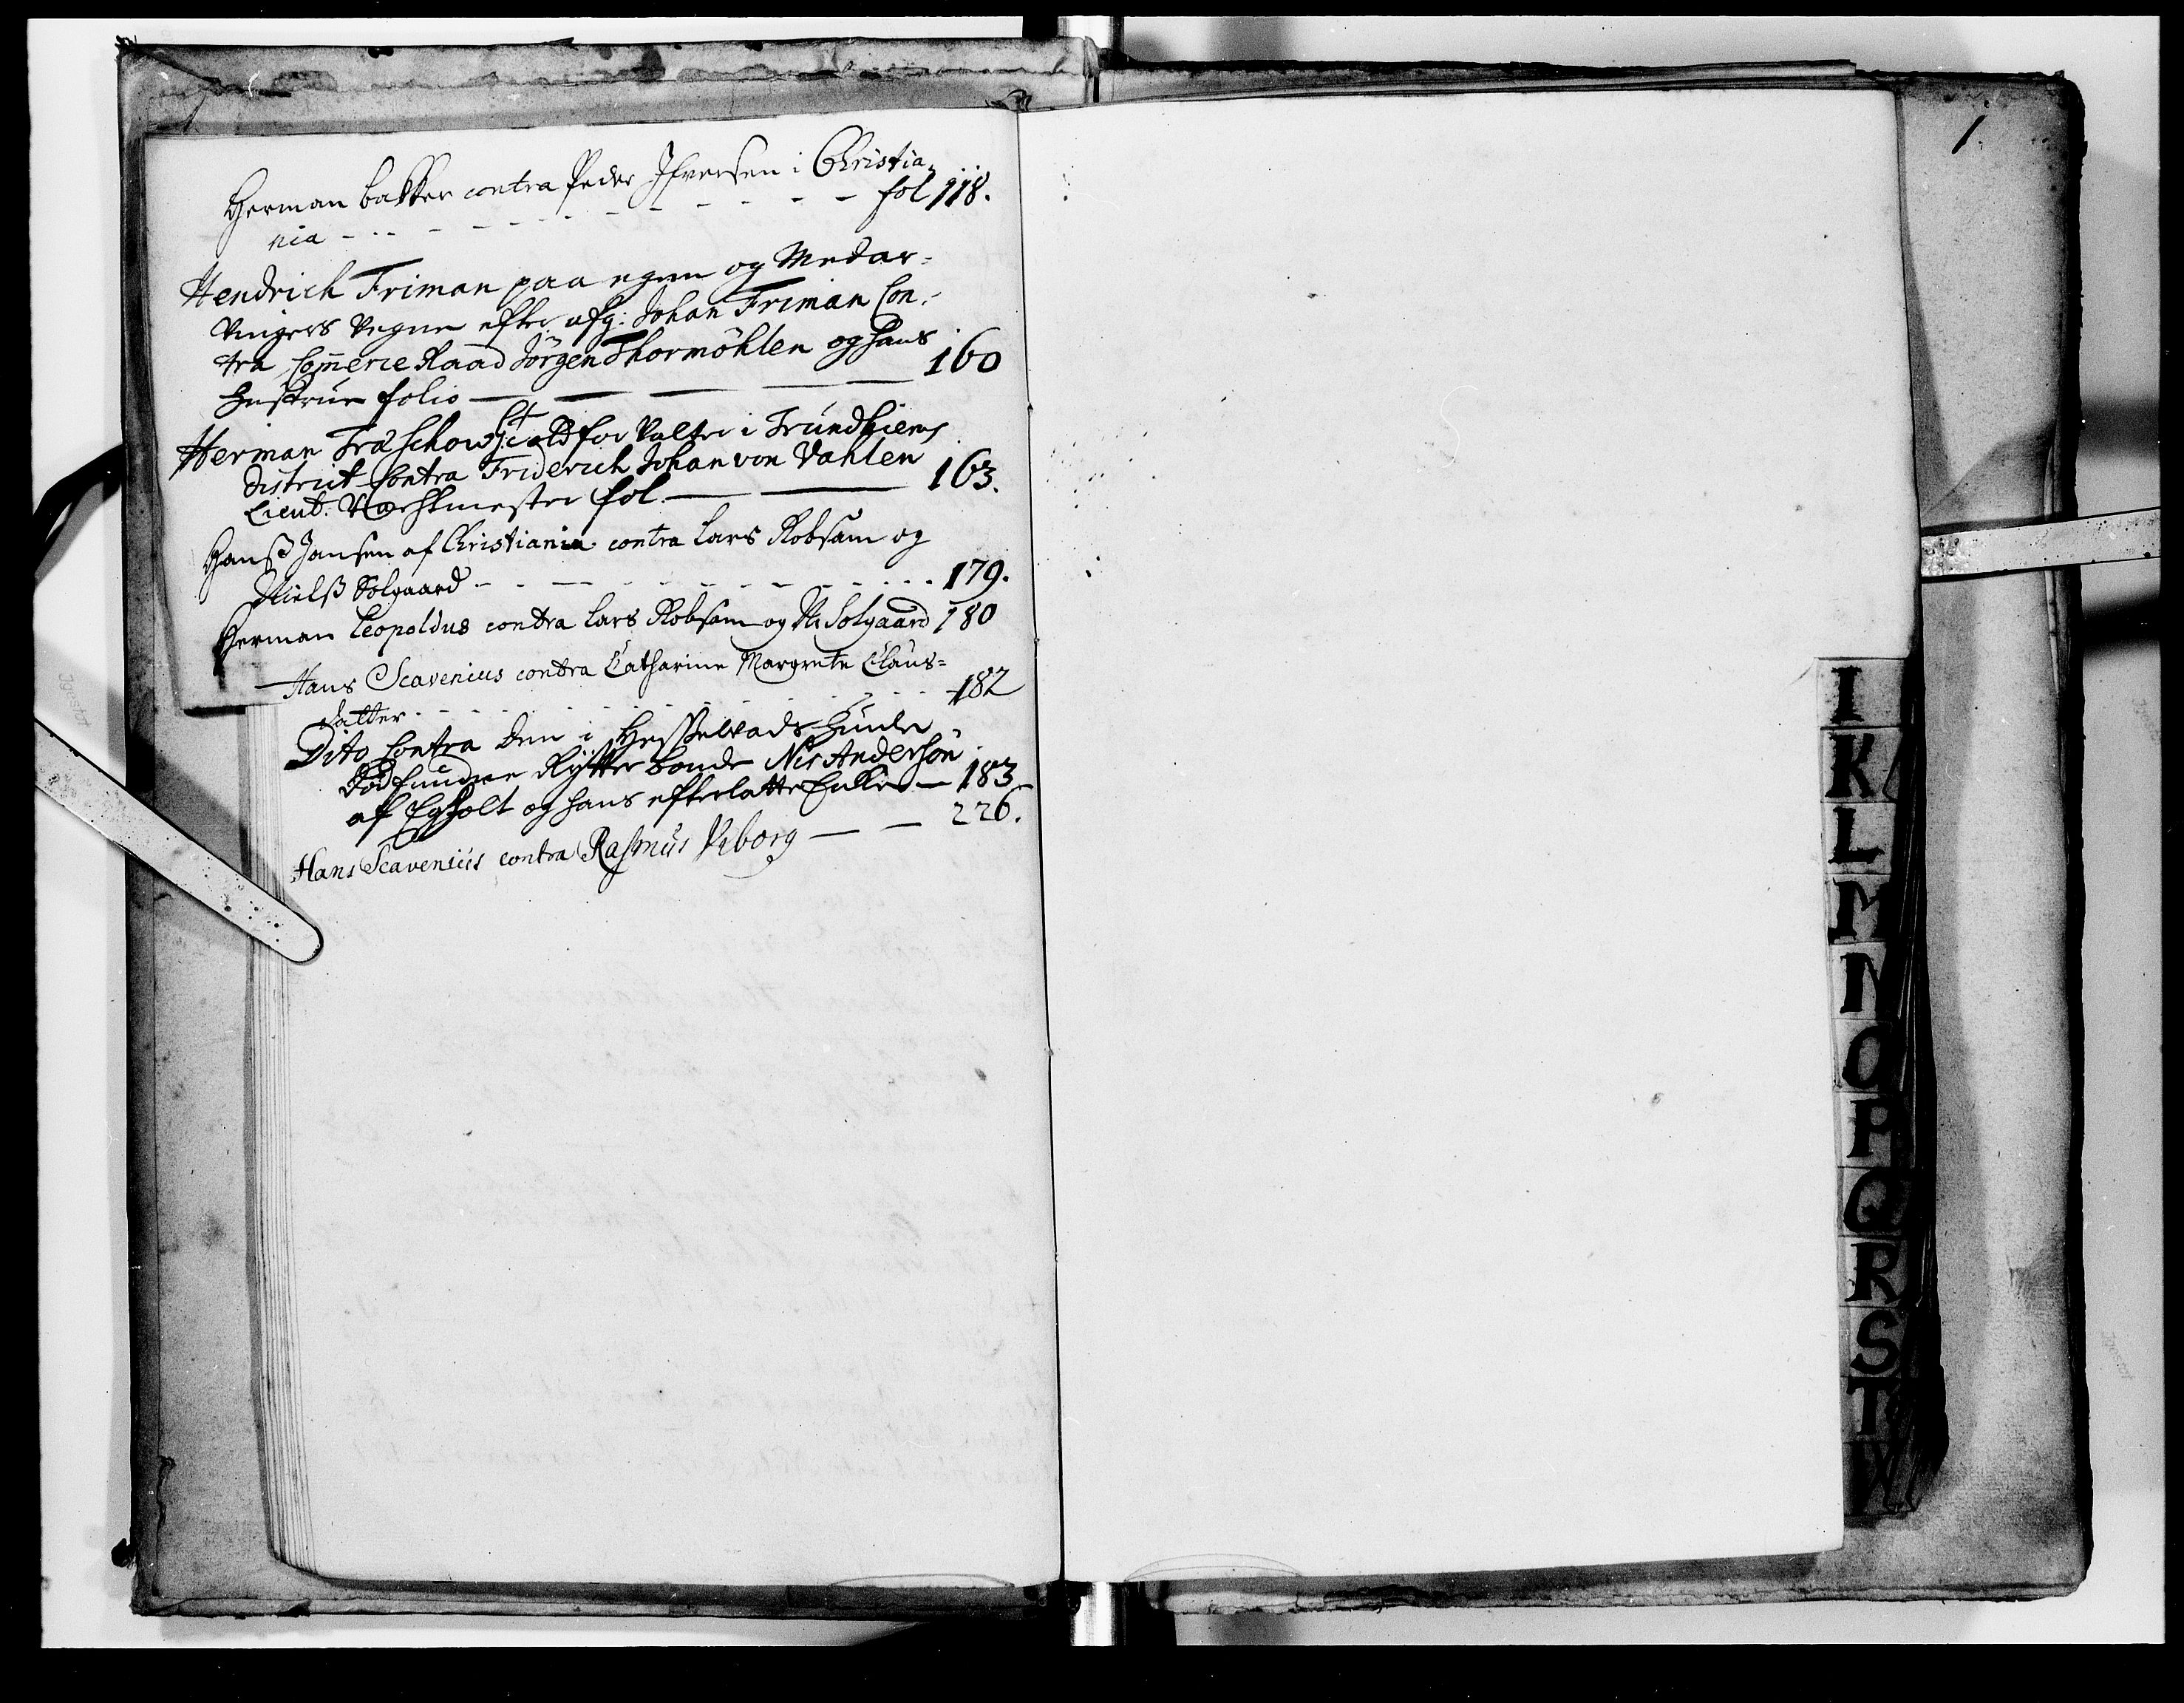 Herman bakker contra Peder Ifversen i Christia-
nia - - - - - - - - - - fol 118.
Hendrich Friman paa egen og Medar-
vingers vegne efter afg: Johan Friman Con-
tra Commerce Raad Jörgen Thormöhlen og hans
Hustrue folio — — — — 160
Herman Træschow for Valter i Trundhiems
district contra Friderich Johan von Vahlen
Lieut: Værkmester fol. — — 163.
Hanß Jansen af Christiania contra Lars Robsam og
Nielß Solgaard - - - - - - - - - - 179.
Herman Leopoldus contra Lars Robsam og N: Solgaard 180
Hans Scavenius contra Catharine Margrete Claus-
datter - - - - - - - - - - 182
Dito Contra den i Hesselvads Hunle
dödfundne Rytter bonde Nis Andersön
af Egholt og hans efterlatte Enke — 183
Hans Scavenius contra Rasmus Viborg — — 226.
1.
I
K
L
M
N
O
P
Q
R
S
T
W